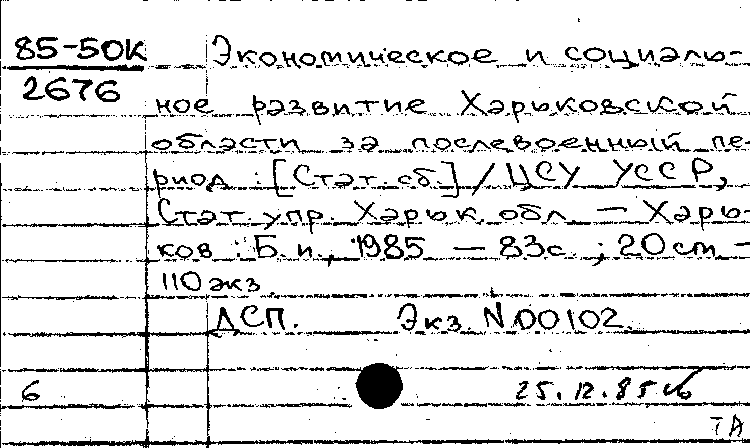 85-50К Экономическое и социаль-
2676
ное развитие Харьковской
области за послевоенный пе-
риод : [Стат. сб.] / ЦСУ УССР,
Стат. упр. Харьк. обл. — Харь-
ков : Б. и., 1985 — 83с. ; 20 cm —
110 экз.
ДСП. Экз. N 00102.
6 25.12.85
ТА